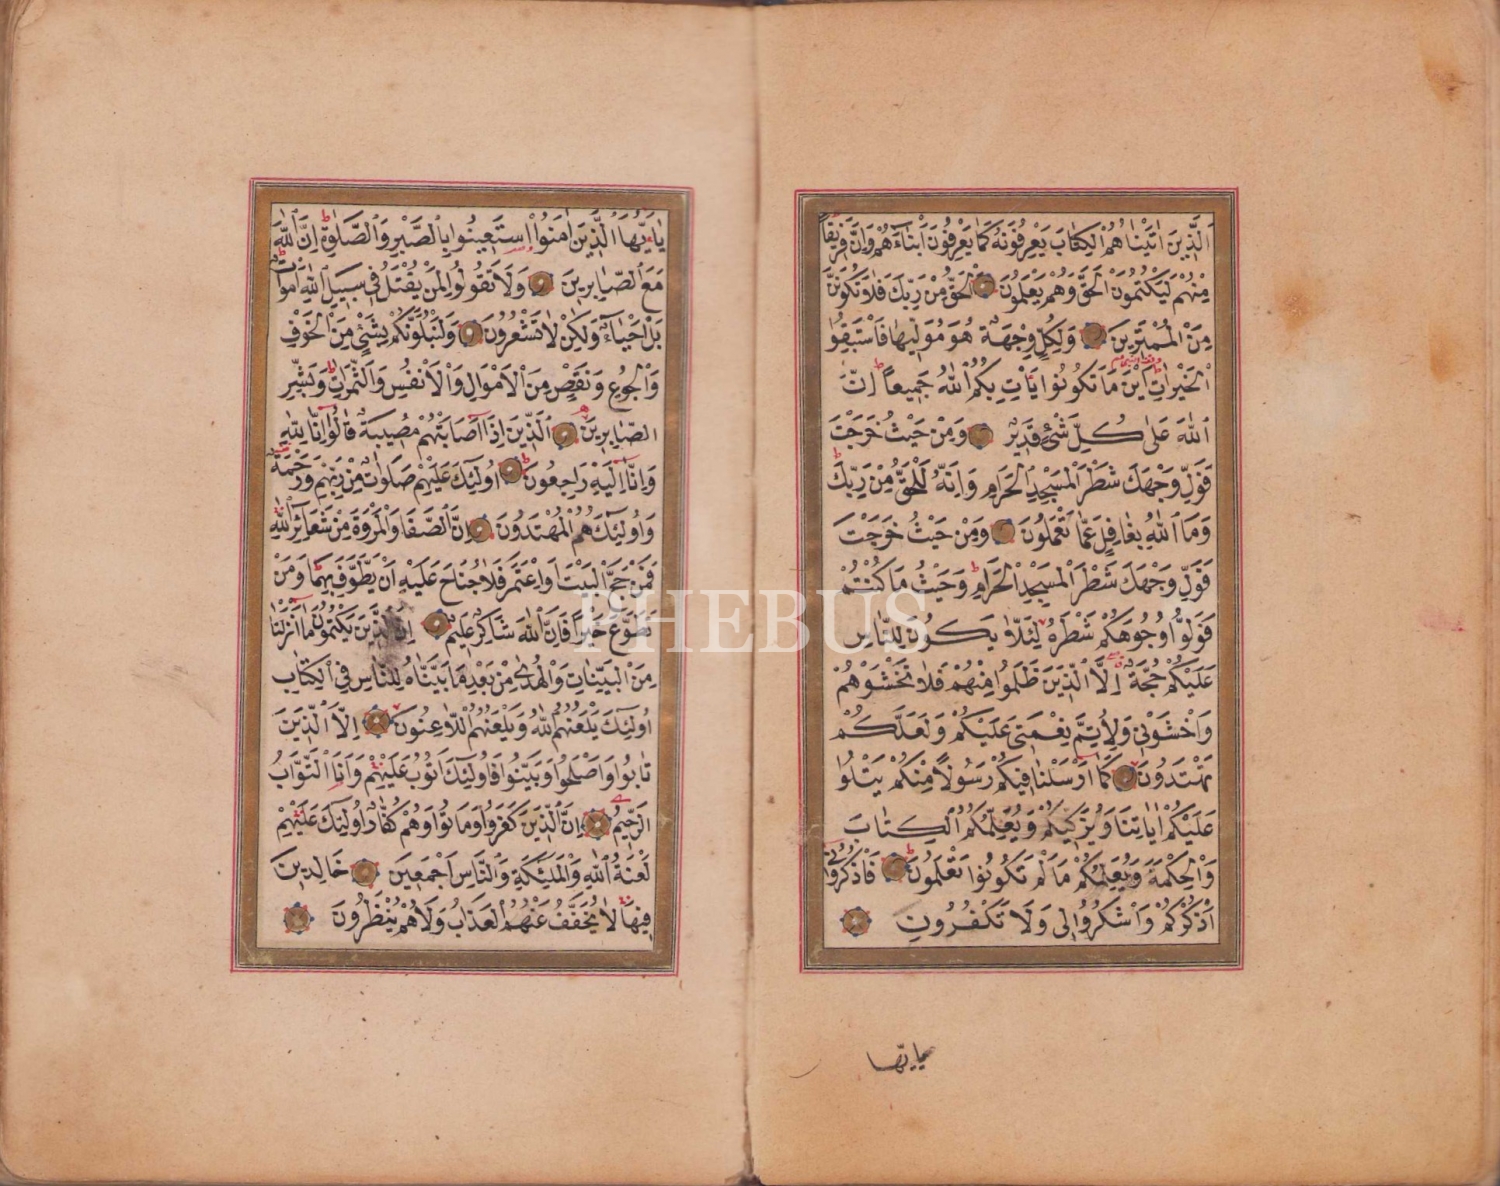 اَلَّذِينَ اٰتَيْنَاهُمُ الْكِتَابَ يَعْرِفُونَهُ كَمَا يَعْرِفُونَ اَبْنَاءَهُمْ وَاِنَّ فَرِيقًا
مِنْهُمْ لَيَكْتُمُونَ الْحَقَّ وَهُمْ يَعْلَمُونَ اَلْحَقُّ مِنْ رَبِّكَ فَلَا تَكُونَنَّ
مِنَ الْمُمْتَرِينَ وَلِكُلٍّ وِجْهَةٌ هُوَ مُوَلِّيهَا فَاسْتَبِقُوا
الْخَيْرَاتِ اَيْنَ مَا تَكُونُوا يَأْتِ بِكُمُ اللّٰهُ جَمِيعًا اِنَّ
اللّٰهَ عَلٰى كُلِّ شَيْءٍ قَدِيرٌ وَمِنْ حَيْثُ خَرَجْتَ
فَوَلِّ وَجْهَكَ شَطْرَ الْمَسْجِدِ الْحَرَامِ وَاِنَّهُ لَلْحَقُّ مِنْ رَبِّكَ
وَمَا اللّٰهُ بِغَافِلٍ عَمَّا تَعْمَلُونَ وَمِنْ حَيْثُ خَرَجْتَ
فَوَلِّ وَجْهَكَ شَطْرَ الْمَسْجِدِ الْحَرَامِ وَحَيْثُ مَا كُنْتُمْ
فَوَلُّوا وُجُوهَكُمْ شَطْرَهُ لِئَلَّا يَكُونَ لِلنَّاسِ
عَلَيْكُمْ حُجَّةٌ اِلَّا الَّذِينَ ظَلَمُوا مِنْهُمْ فَلَا تَخْشَوْهُمْ
وَاخْشَوْنِي وَلِأُتِمَّ نِعْمَتِي عَلَيْكُمْ وَلَعَلَّكُمْ
تَهْتَدُونَ كَمَا اَرْسَلْنَا فِيكُمْ رَسُولًا مِنْكُمْ يَتْلُوا
عَلَيْكُمْ اٰيَاتِنَا وَيُزَكِّيكُمْ وَيُعَلِّمُكُمُ الْكِتَابَ
وَالْحِكْمَةَ وَيُعَلِّمُكُمْ مَا لَمْ تَكُونُوا تَعْلَمُونَ فَاذْكُرُونِي
اَذْكُرْكُمْ وَاشْكُرُوا لِي وَلَا تَكْفُرُونِ
يا ايها
يَا اَيُّهَا الَّذِينَ اٰمَنُوا اسْتَعِينُوا بِالصَّبْرِ وَالصَّلٰوةِ اِنَّ اللّٰهَ
مَعَ الصَّابِرِينَ وَلَا تَقُولُوا لِمَنْ يُقْتَلُ فِي سَبِيلِ اللّٰهِ اَمْوَاتٌ
بَلْ اَحْيَاءٌ وَلٰكِنْ لَا تَشْعُرُونَ وَلَنَبْلُوَنَّكُمْ بِشَيْءٍ مِنَ الْخَوْفِ
وَالْجُوعِ وَنَقْصٍ مِنَ الْاَمْوَالِ وَالْاَنْفُسِ وَالثَّمَرَاتِ وَبَشِّرِ
الصَّابِرِينَ اَلَّذِينَ اِذَا اَصَابَتْهُمْ مُصِيبَةٌ قَالُوا اِنَّا لِلّٰهِ
وَاِنَّا اِلَيْهِ رَاجِعُونَ اُولٰئِكَ عَلَيْهِمْ صَلَوَاتٌ مِنْ رَبِّهِمْ وَرَحْمَةٌ
وَاُولٰئِكَ هُمُ الْمُهْتَدُونَ اِنَّ الصَّفَا وَالْمَرْوَةَ مِنْ شَعَائِرِ اللّٰهِ
فَمَنْ حَجَّ الْبَيْتَ اَوِ اعْتَمَرَ فَلَا جُنَاحَ عَلَيْهِ اَنْ يَطَّوَّفَ بِهِمَا وَمَنْ
تَطَوَّعَ خَيْرًا فَاِنَّ اللّٰهَ شَاكِرٌ عَلِيمٌ اِنَّ الَّذِينَ يَكْتُمُونَ مَا اَنْزَلْنَا
مِنَ الْبَيِّنَاتِ وَالْهُدٰى مِنْ بَعْدِ مَا بَيَّنَّاهُ لِلنَّاسِ فِي الْكِتَابِ
اُولٰئِكَ يَلْعَنُهُمُ اللّٰهُ وَيَلْعَنُهُمُ اللَّاعِنُونَ اِلَّا الَّذِينَ
تَابُوا وَاَصْلَحُوا وَبَيَّنُوا فَاُولٰئِكَ اَتُوبُ عَلَيْهِمْ وَاَنَا التَّوَّابُ
الرَّحِيمُ اِنَّ الَّذِينَ كَفَرُوا وَمَاتُوا وَهُمْ كُفَّارٌ اُولٰئِكَ عَلَيْهِمْ
لَعْنَةُ اللّٰهِ وَالْمَلٰئِكَةِ وَالنَّاسِ اَجْمَعِينَ خَالِدِينَ
فِيهَا لَا يُخَفَّفُ عَنْهُمُ الْعَذَابُ وَلَا هُمْ يُنْظَرُونَ
PHEBUS